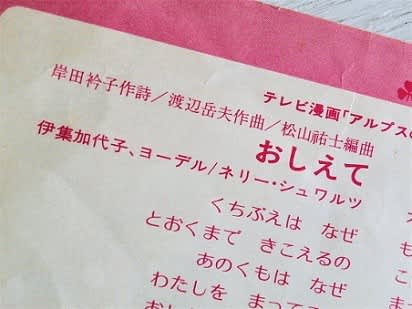 テレビ漫画「アルプスの
岸田衿子作詩/渡辺岳夫作曲/松山祐士編曲
おしえて
伊集加代子、ヨーデル/ネリー・シュワルツ
くちぶえは なぜ
とおくまで きこえるの
あのくもは なぜ
わたしを まって